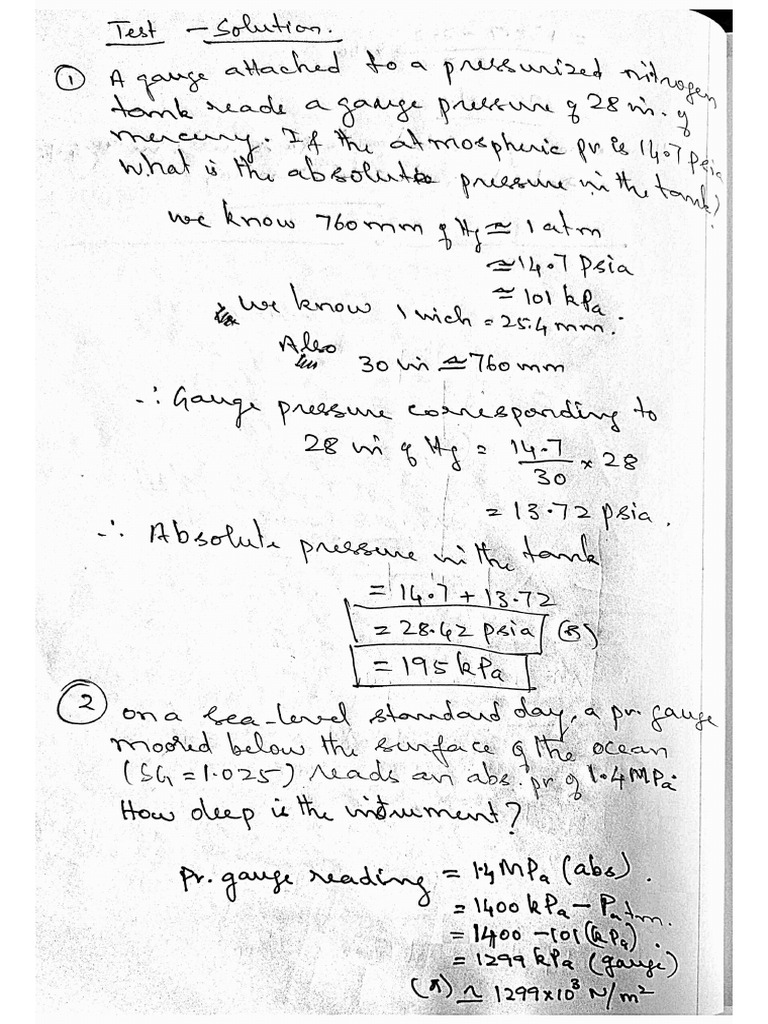 Test - Solution.
① A gauge attached to a pressurized nitrogen
tank reads a gauge pressure of 28 in. of
mercury. If the atmospheric pr is 14.7 psia
what is the absolute pressure in the tank?
we know 760 mm of Hg ≃ 1 atm
≃ 14.7 Psia
≃ 101 kPa.
we know 1 inch = 25.4 mm.
Also
30 in ≃ 760 mm
∴ Gauge pressure corresponding to
28 in of Hg = 14.7/30 × 28
= 13.72 psia.
∴ Absolute pressure in the tank
= 14.7 + 13.72
= 28.42 psia
= 195 kPa
② on a sea-level standard day, a pr. gauge
moored below the surface of the ocean
(SG = 1.025) reads an abs. pr of 1.4 MPa.
How deep is the instrument?
Pr. gauge reading = 1.4 MPa (abs).
= 1400 kPa - Patm.
= 1400 - 101 (kPa).
= 1299 kPa (gauge)
≃ 1299×10³ N/m²